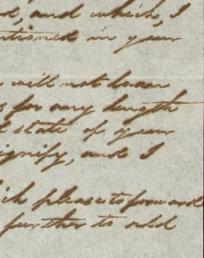 and which, I
in your
will not
for any length
state of your
signify, and I
please to forward
further to add